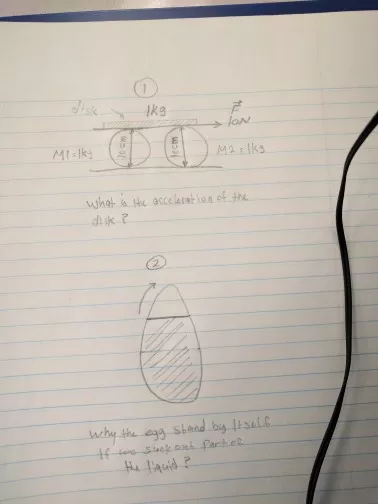 1
disk 1kg
F
10N
M1=1kg 10cm 10cm M2=1kg
What is the acceleration of the
disk?
2
Why the egg stand by itself
If we suck out part of
the liquid?